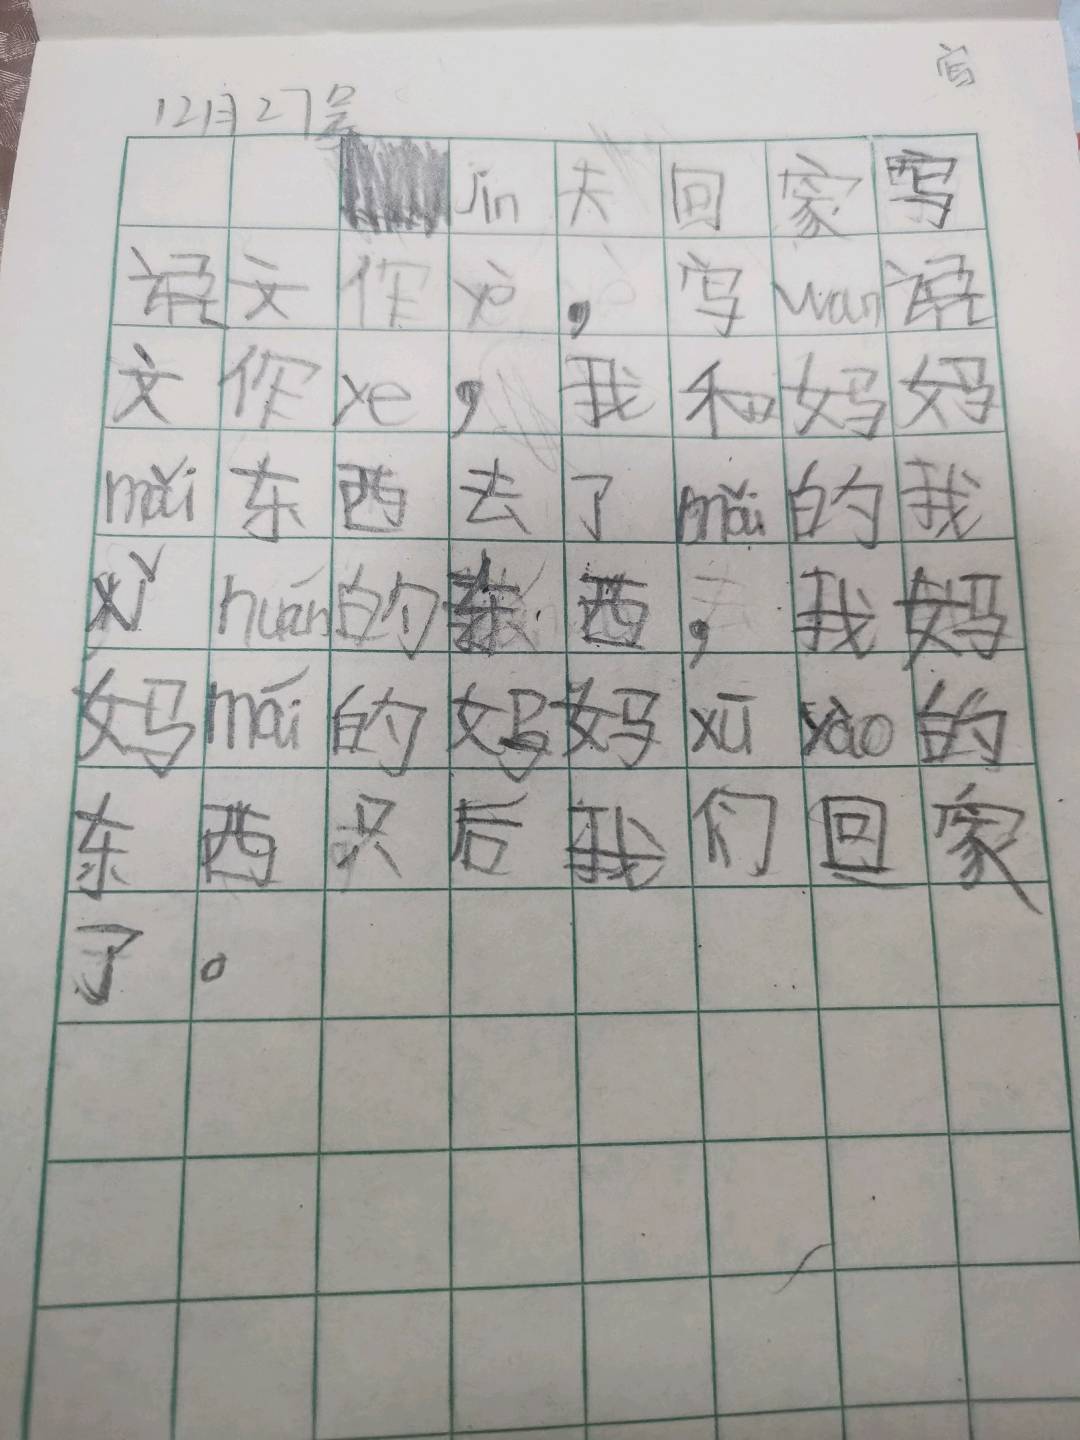 12月27号
jin天回家写
语文作yè，写wan语
文作ye，我和妈妈
mǎi东西去了mǎi的我
xǐhuán的东西，我妈
妈mái的妈妈xūyào的
东西只后我们回家
了。